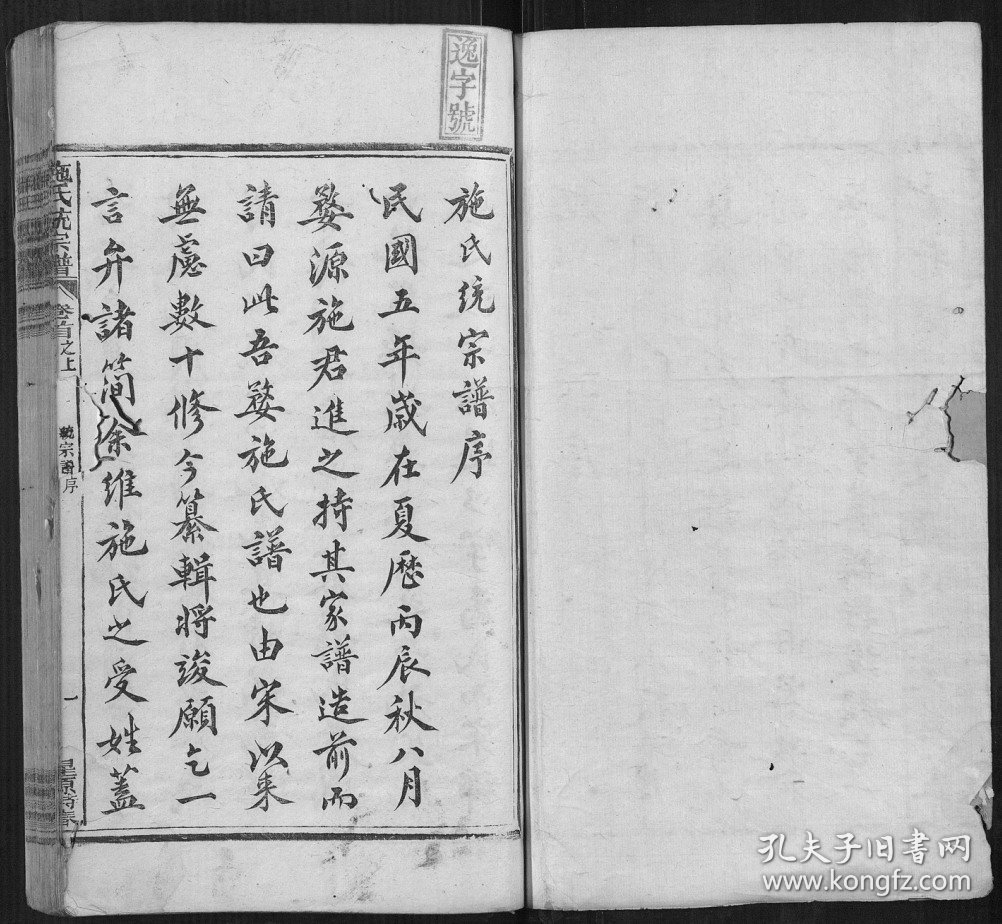 逸字號
施氏統宗譜序
民國五年歲在夏歷丙辰秋八月
婺源施君進之持其家譜造前而
請曰此吾婺施氏譜也由宋以來
無慮數十修今纂輯將竣願乞一
言弁諸簡余維施氏之受姓蓋
施氏統宗譜
卷首之上
統宗譜序
一
孔夫子旧书网
www.kongfz.com